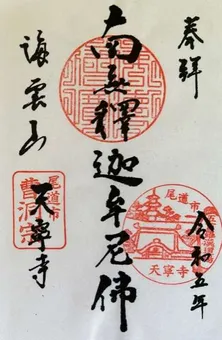 奉拝
令和五年
南無釋迦牟尼佛
海雲山
天寧寺
尾道市
曹洞宗
尾道市
天寧寺